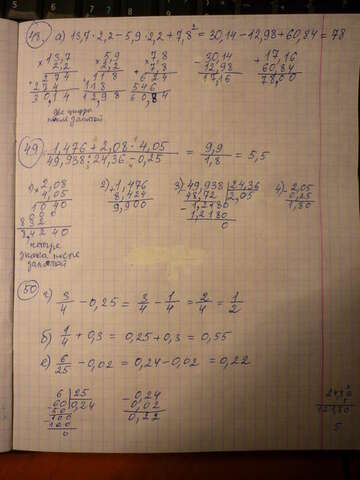 48. а) 13,7 · 2,2 – 5,9 · 2,2 + 7,8² = 30,14 – 12,98 + 60,84 = 78
× 13,7 × 5,9 × 7,8 – 30,14 + 17,16
2,2 2,2 7,8 12,98 60,84
274 118 624 17,16 78,00
274 118 546
30,14 12,98 60,84
две цифры
после запятой
49 1,476 + 2,08 · 4,05 = 9,9 = 5,5
49,938 : 24,36 – 0,25 1,8
1) × 2,08 2) + 1,476 3) 49,938 | 24,36 4) – 2,05
4,05 8,424 48,72 2,05 0,25
1040 9,900 1,2180 1,80
000 1,2180
832 0
8,4240
четыре
знака после
запятой
50 г) 3/4 – 0,25 = 3/4 – 1/4 = 2/4 = 1/2
б) 1/4 + 0,3 = 0,25 + 0,3 = 0,55
е) 6/25 – 0,02 = 0,24 – 0,02 = 0,22
6 | 25 – 0,24
60 0,24 0,02
50 0,22
100
100
0